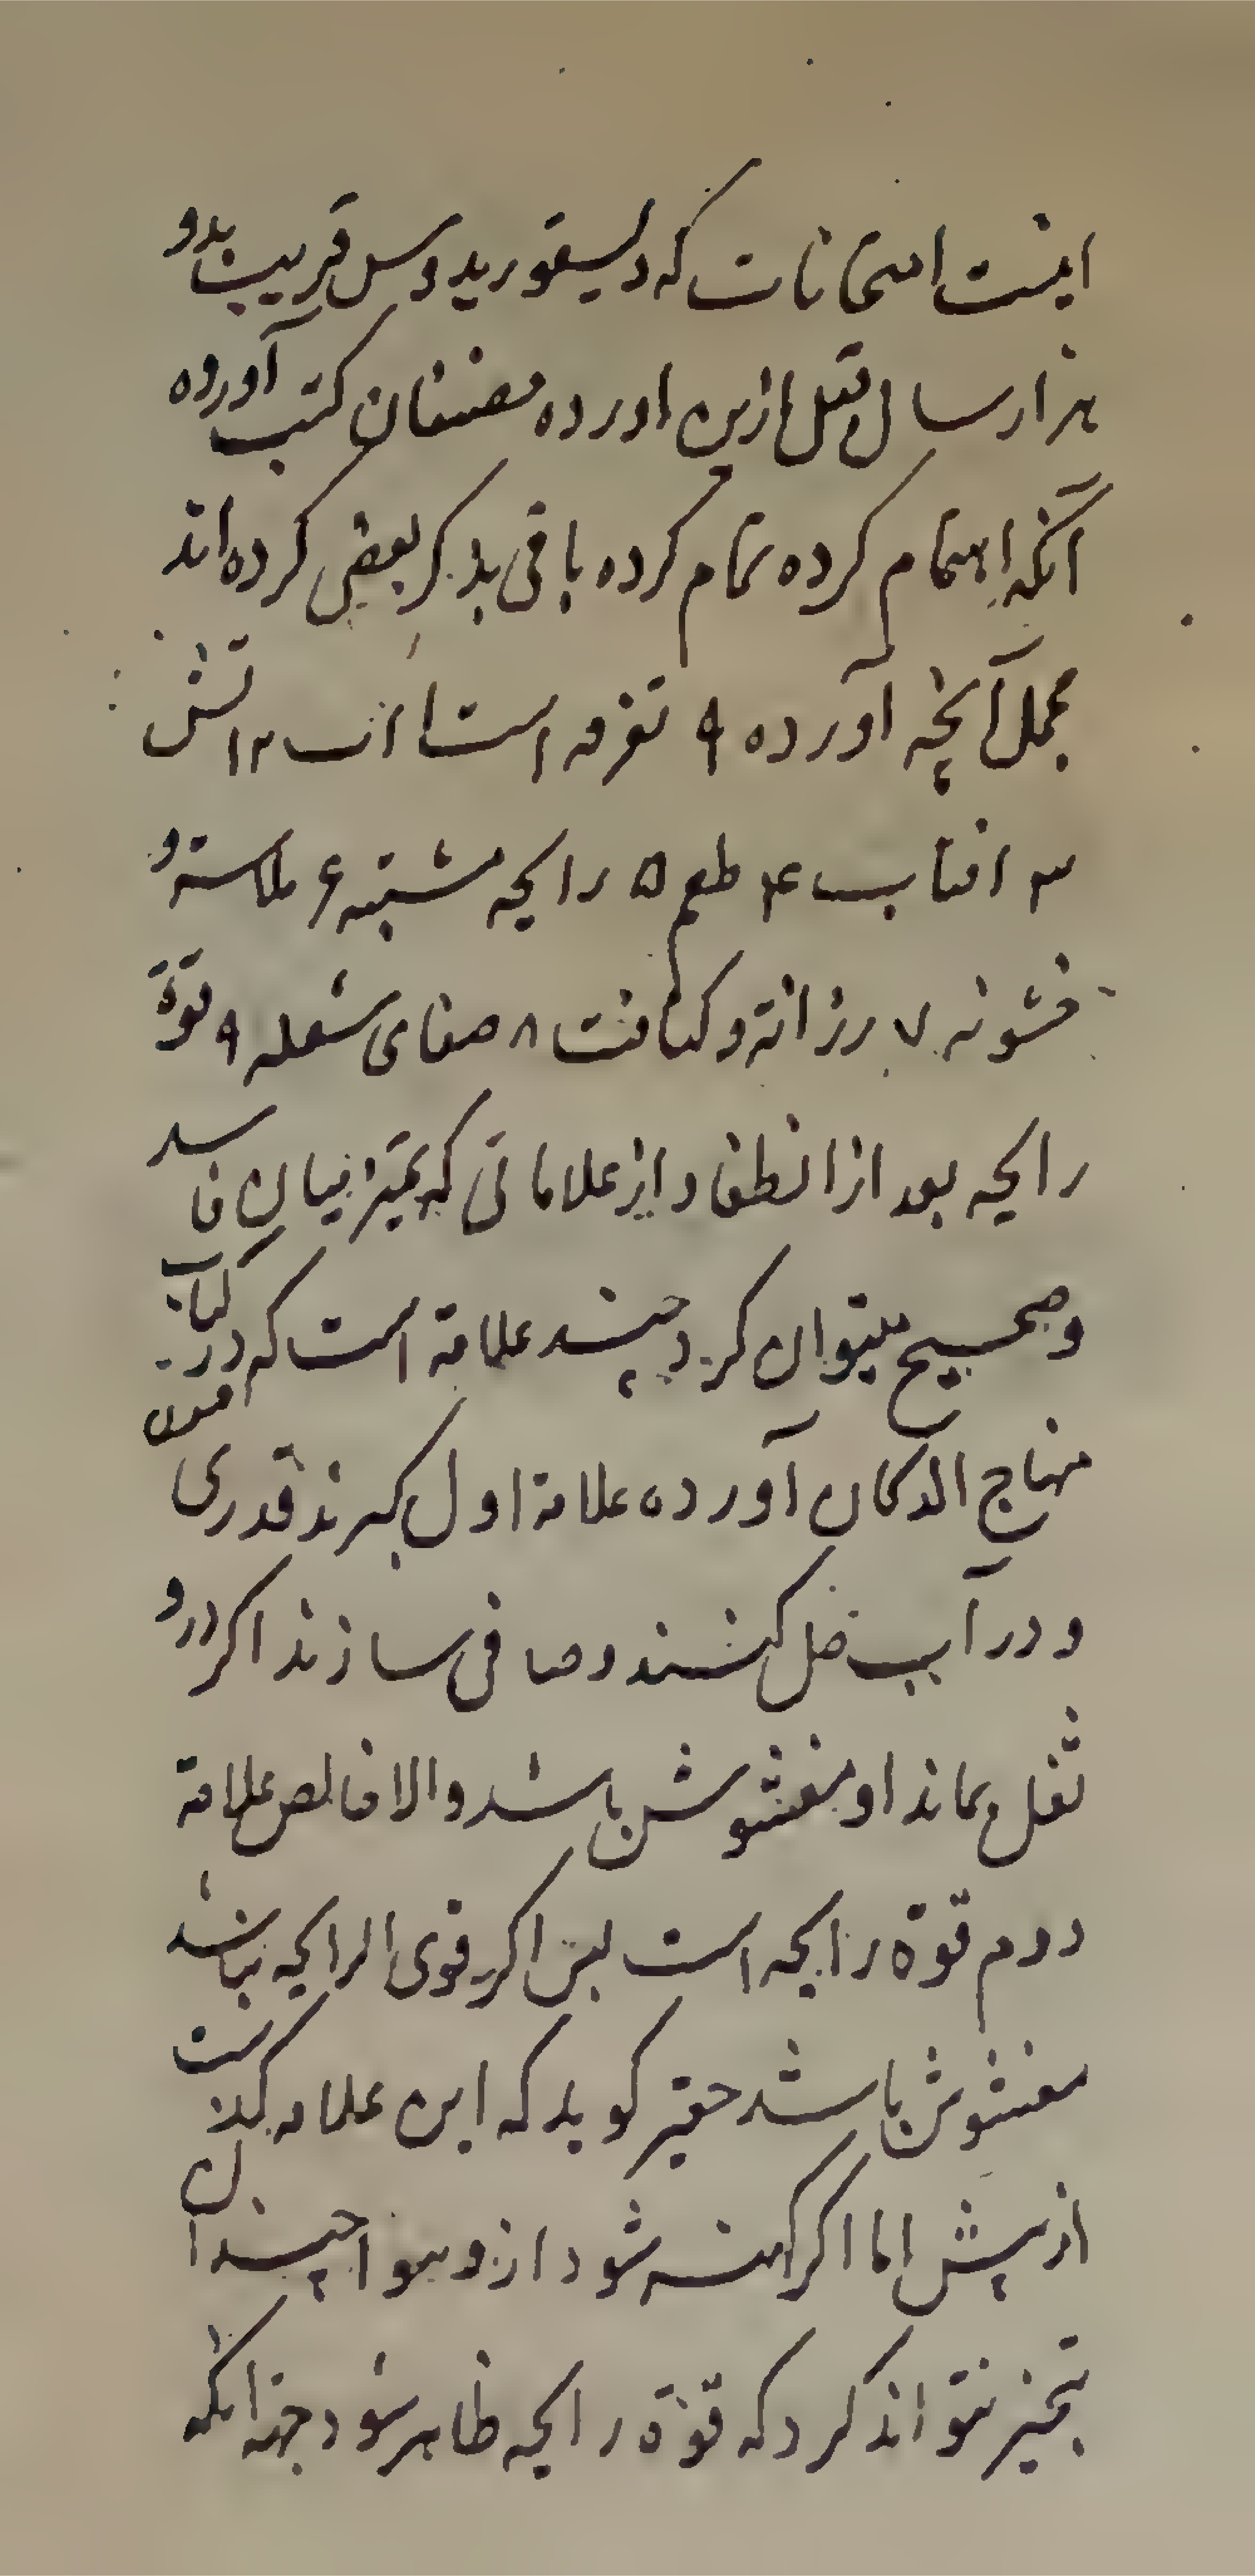 اینست امتحانات که دیسقوریدوس قریب بدو
هزار سال قبل ازین اورده مصنفان کتب آورده
آنکه اهتمام کرده تمام کرده باقی بذکر بعضی کرده اند
مجمل آنچه آورده ۹ تفرقه است ا آب ۲ اتش
۳ افتاب ۴ طعم ۵ رایحه مشتبه ۶ ملاسته و
خشونه ۷ رزانة و کثافت ۸ صفای شعله ۹ قوة
رایحه بعد از انطفا و از علاماتی که تمیز میان فاسد
و صحیح میتوان کرد چند علامة است که در کتاب
منهاج الدکان آورده علامة اول کیرند قدری افیون
و در آب حل کنند و صافی سازند اکر درو
ثفل بماند او مغشوش باشد والا خالص علامة
دوم قوة رایحه است پس اکر قوی الرایحه نباشد
مغشوش باشد حقیر کوید که این علامه کذشت
از پیش اما اکر شود از و چندان
تمیز نتواند کرد که قوة رایحه ظاهر شود جهة انکه